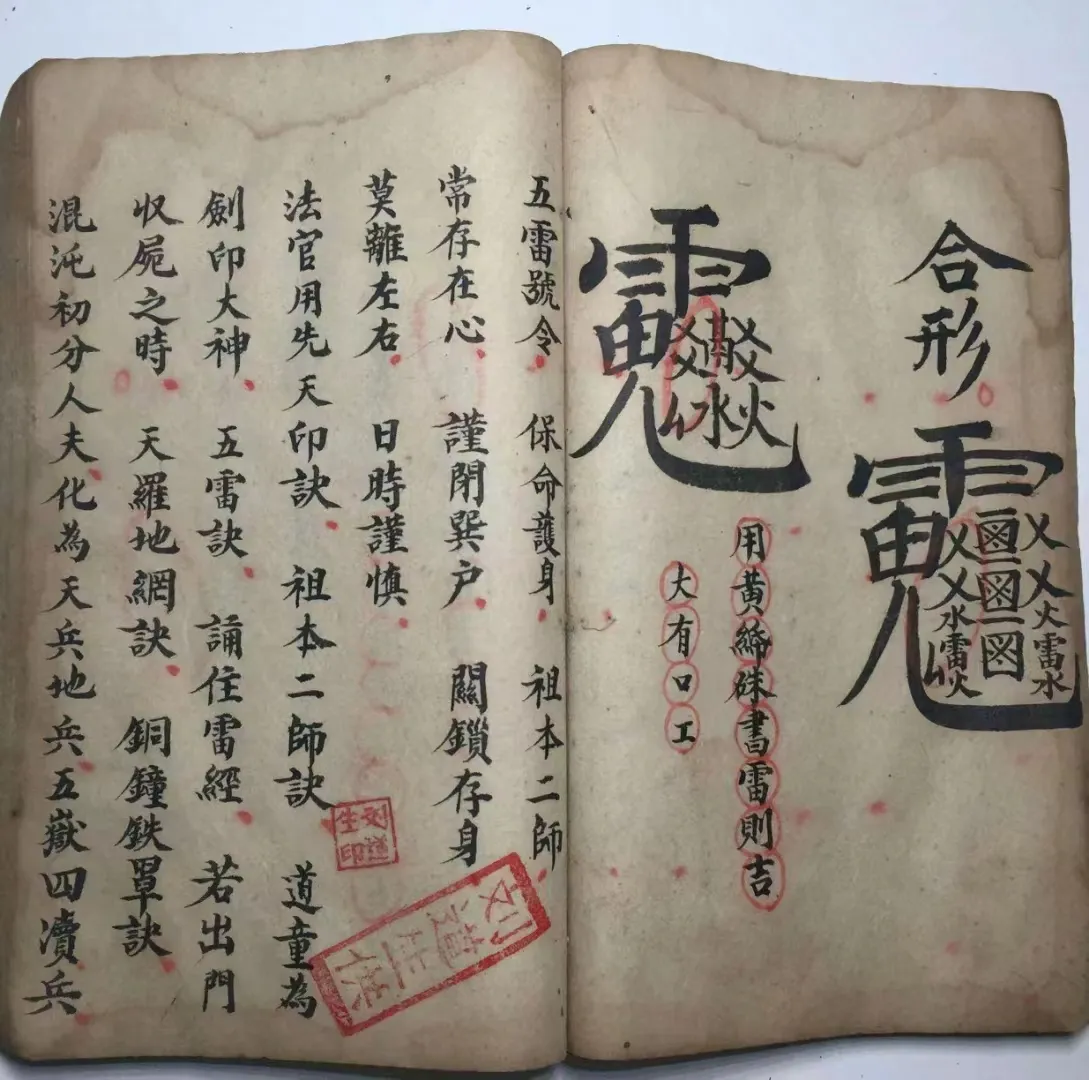 合形
火雷水
水雷火
用黄綈硃書雷則吉
大有口工
五雷號令 保命護身 祖本二師
常存在心 謹閉巽户 關鎖存身
莫離左右 日時謹慎
法官用先天印訣 祖本二師訣 道童為
劍印大神 五雷訣 誦住雷經 若出門
収屍之時 天羅地網訣 銅鐘鉄罩訣
混沌初分人夫化為天兵地兵五嶽四瀆兵